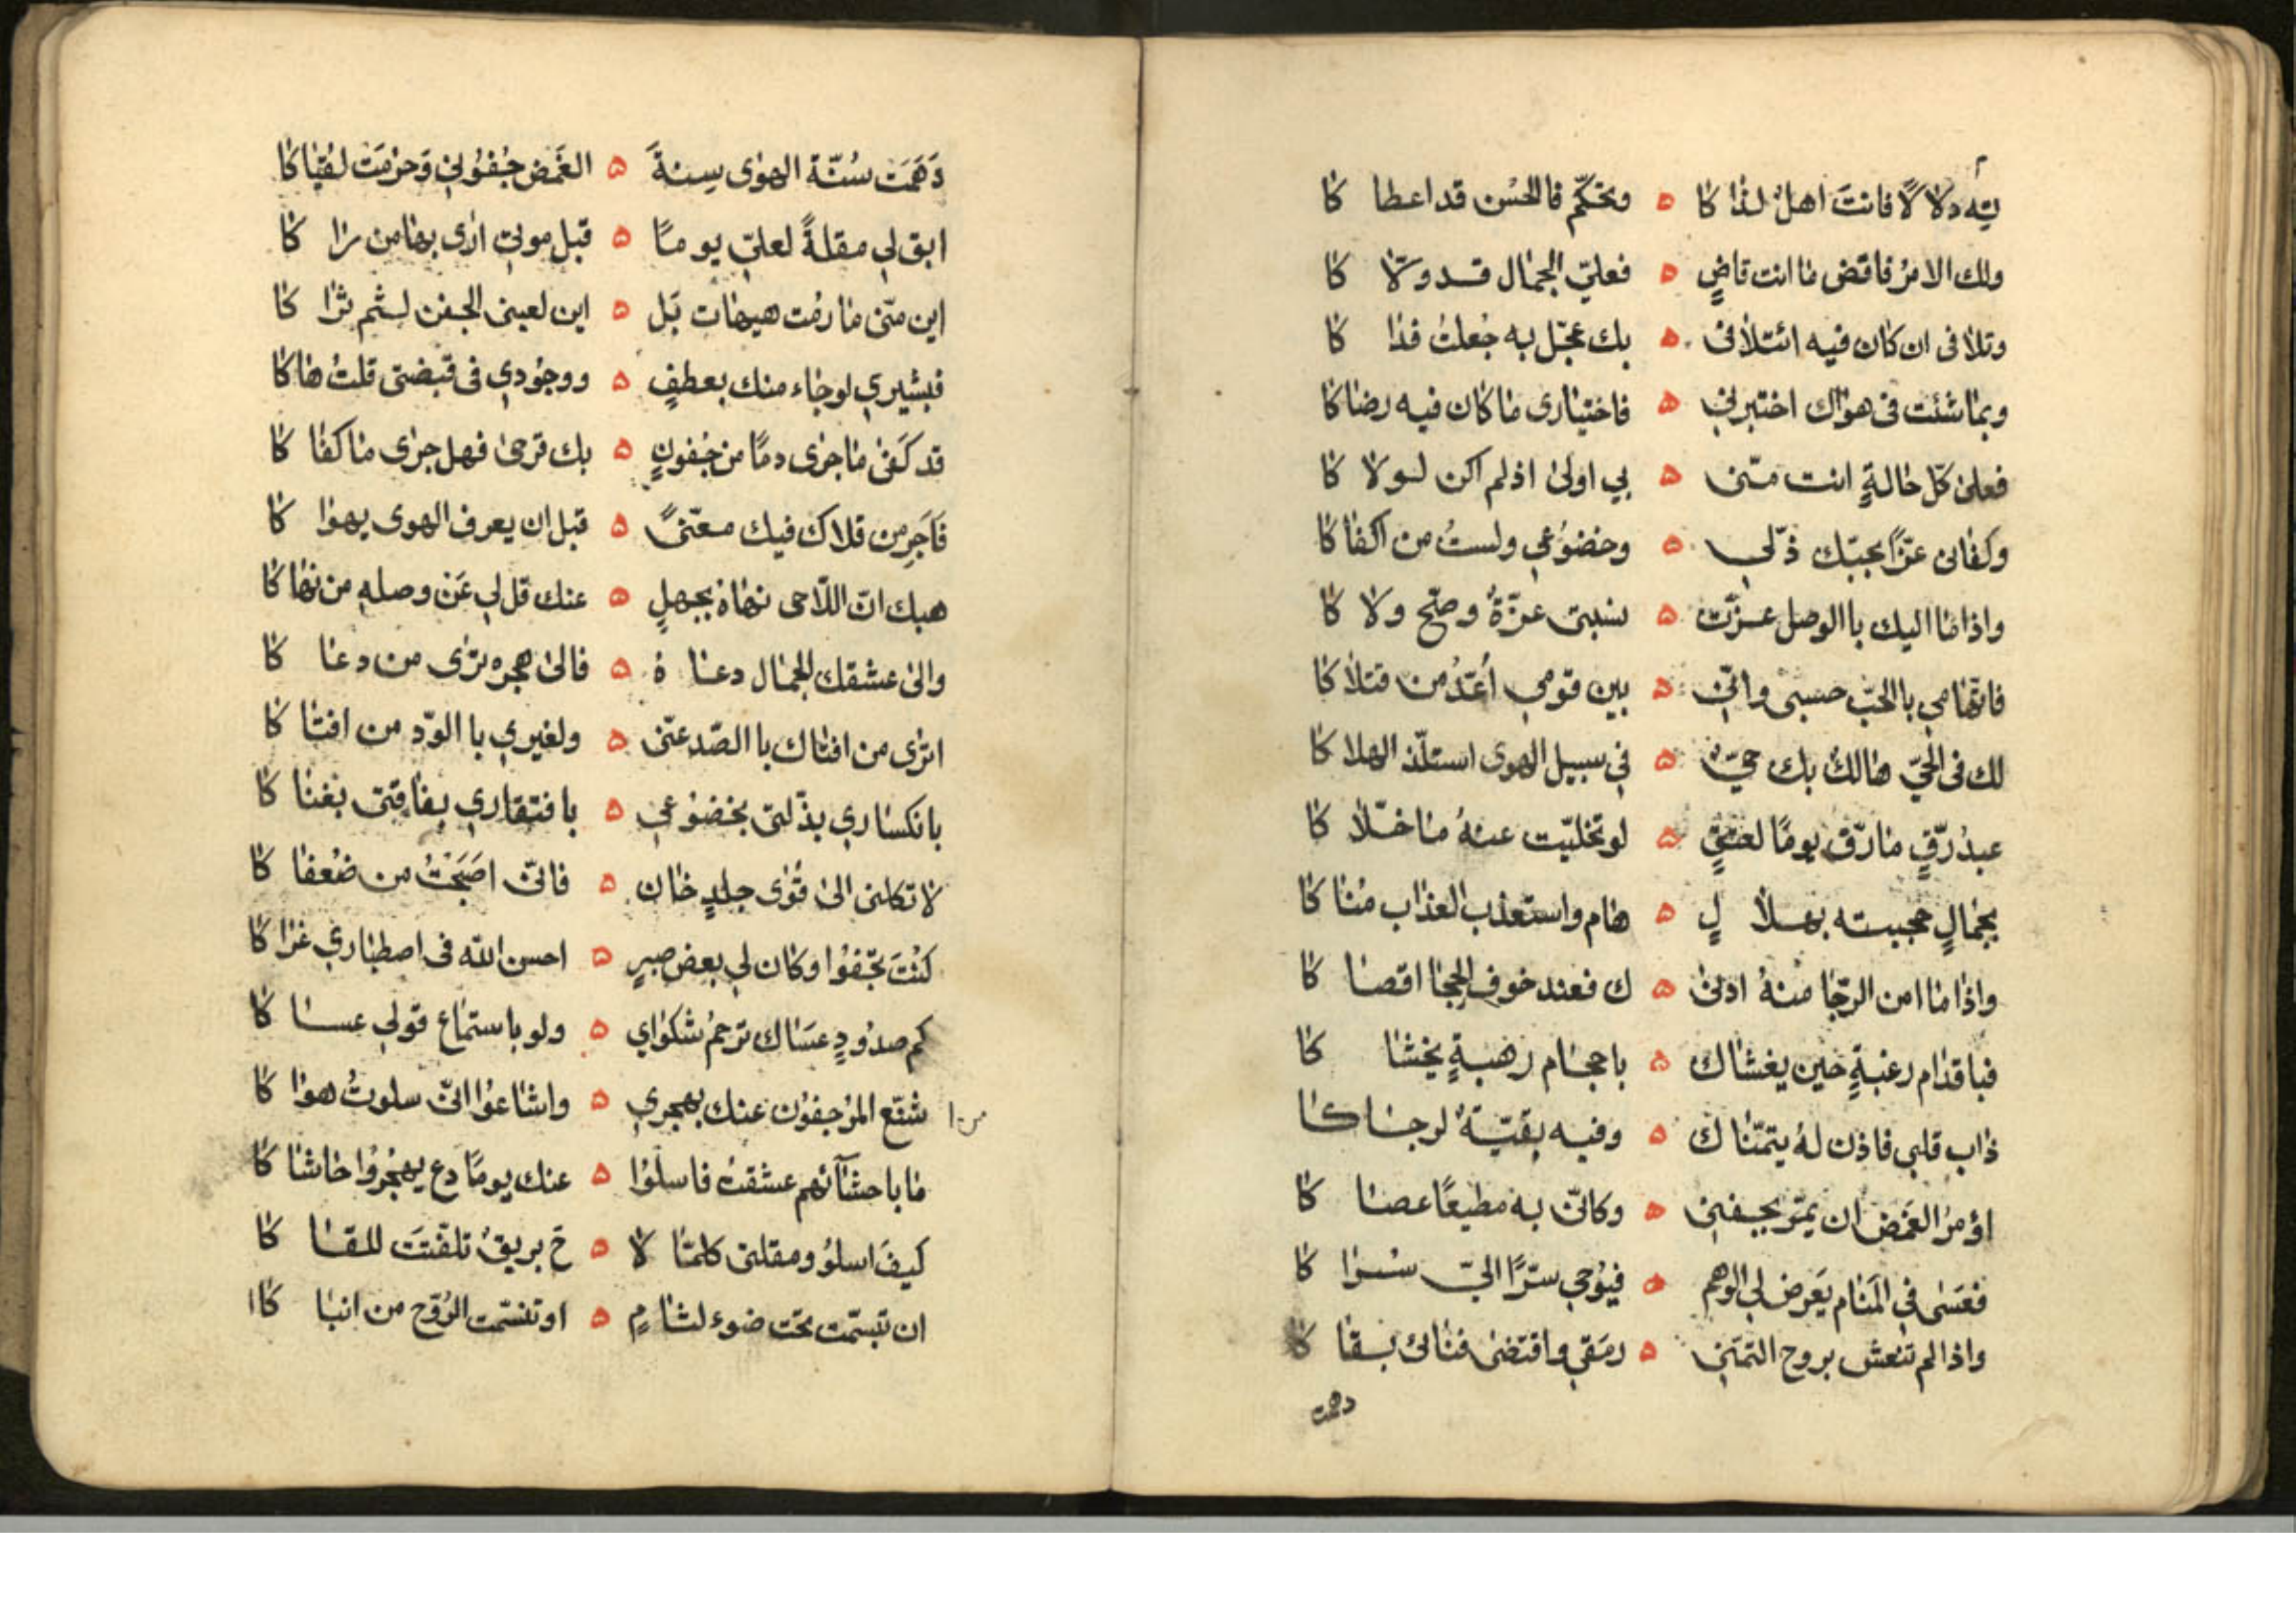 ته دلالًا فانت اهلٌ لذاكا ه وتحكّم فالحُسن قد اعطاكا
ولك الامرُ فاقض ما انت قاضٍ ه فعليّ الجمال قد ولّاكا
وتلافى ان كان فيه ائتلافى ه بك عجّل به جُعلتُ فداكا
وبما شئت فى هواك اختبرنى ه فاختيارى ما كان فيه رضاكا
فعلى كلّ حالةٍ انت منّى ه بي اولى اذ لم اكن لولاكا
وكفانى عزًّا بحبّك ذلّي ه وخضوعي ولستُ من اكفاكا
واذا ما اليك باالوصل عزّت ه نسبتى عزّةً وصحّ ولاكا
فاتّهامي باالحبّ حسبى وانّى ه بين قومي اُعَدُّ من قتلاكا
لك فى الحيّ هالكٌ بك حيّ ه في سبيل الهوى استلذّ الهلاكا
عبدُ رقٍّ ما رقّ يومًا لعتقٍ ه لو تخلّيت عنهُ ما خلّاكا
بجمالٍ حجبته بجلالٍ ه هام واستعذب العذاب هناكا
واذا ما امن الرجا منهُ ادنى ه ك فعند خوف الحجا اقصاكا
فباقدام رغبةٍ حين يغشاك ه باحجام رهبةٍ يخشاكا
ذاب قلبى فاذن لهُ يتمنّاك ه وفيه بقيّةٌ لرجاكا
اؤ مرُ الغمض ان يمرّ بجفنى ه وكانّى به مطيعًا عصاكا
فعسى في المنام يعرض لى الوهم ه فيوحي سرًّا اليّ سراكا
واذا لم تنعش بروح التمنّى ه رمقي واقتضى فنائى بقاكا
دهمت
دَهَمَت سُنّة الهوى سِنةَ ه الغَمض جُفُونى وَحرّمَت لُقياكا
ابق لي مقلةً لعلّي يومًا ه قبل موتى ارى بها من راكا
اين منّى ما رمت هيهات بَل ه اين لعينى الجفن لثم ثراكا
فبشيري لو جاء منك بعطفٍ ه ووجودي فى قبضتى قلتُ هاكا
قد كفى ما جرى دمًا من جفونٍ ه بك قرحى فهل جرى ما كفاكا
فَاَجِر من قلاك فيك معنّىً ه قبل ان يعرف الهوى يهواكا
هبك انّ اللّاحى نهاهُ بجهلٍ ه عنك قل لي عَن وصلهِ من نهاكا
والى عشقك الجمال دعاهُ ه فالى هجره ترى من دعاكا
اترى من افتاك باالصّد عنّى ه ولغيري باالودّ من افتاكا
بانكساري بذلّتى بخضوعي ه بافتقاري بفاقتى بغناكا
لا تكلنى الى قُوى جلدٍ خان ه فانّى اصبَحتُ من ضُعفاكا
كنتَ تجفوا وكان لي بعض صبرٍ ه احسن الله فى اصطباري عزاكا
كم صدُودٍ عسَاك ترحمُ شكواي ه ولو باستماع قولي عساكا
شنّع المرجفون عنك بهجري ه واشاعوا انّى سلوتُ هواكا
ما باحشآئهم عشقتُ فاسلوا ه عنك يومًا دع يهجروا حاشاكا
كيفَ اسلوُ ومقلتى كلمّا لا ه حَ بريقٌ تلفّتَت للقاكا
ان تبسّمت تحت ضوء لثامٍ ه او تنسّمت الرّوح من انباكا